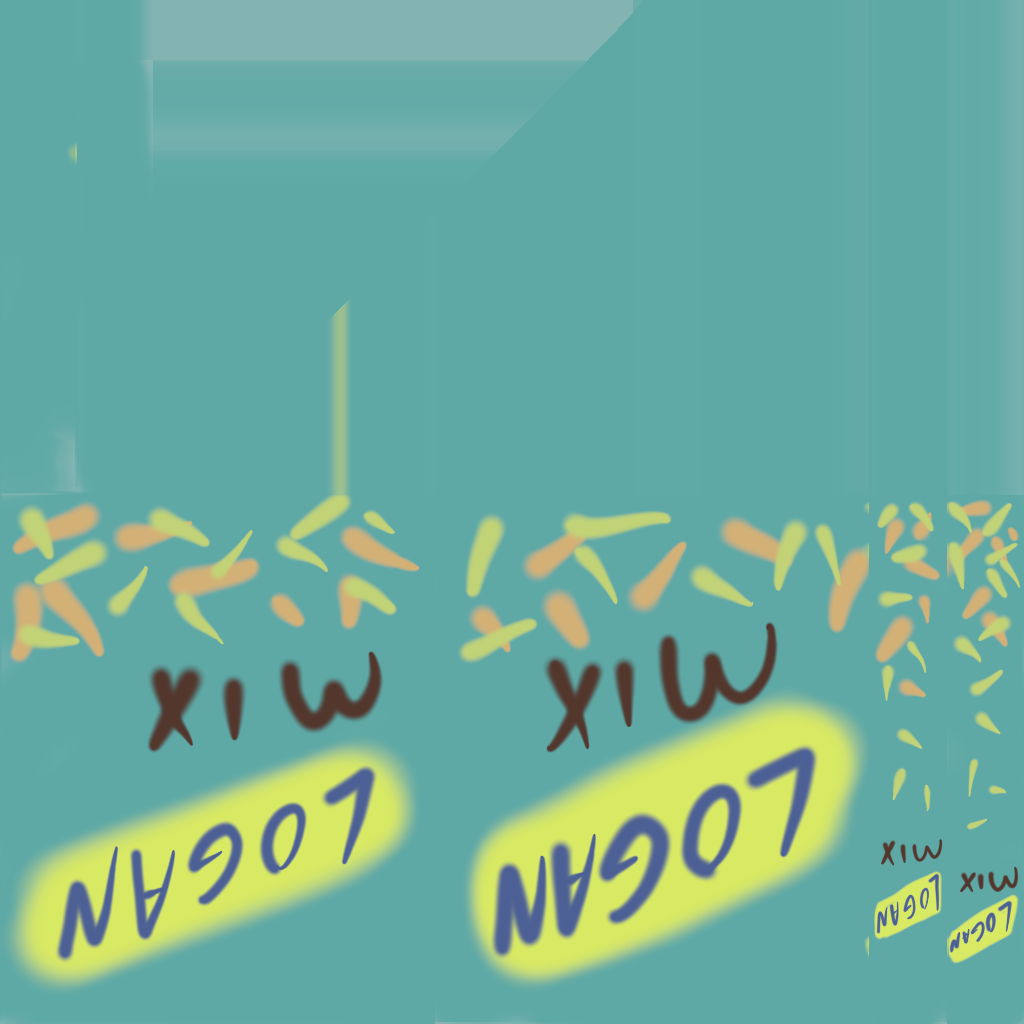 LOGAN
MIX
LOGAN
MIX
LOGAN
MIX
LOGAN
MIX